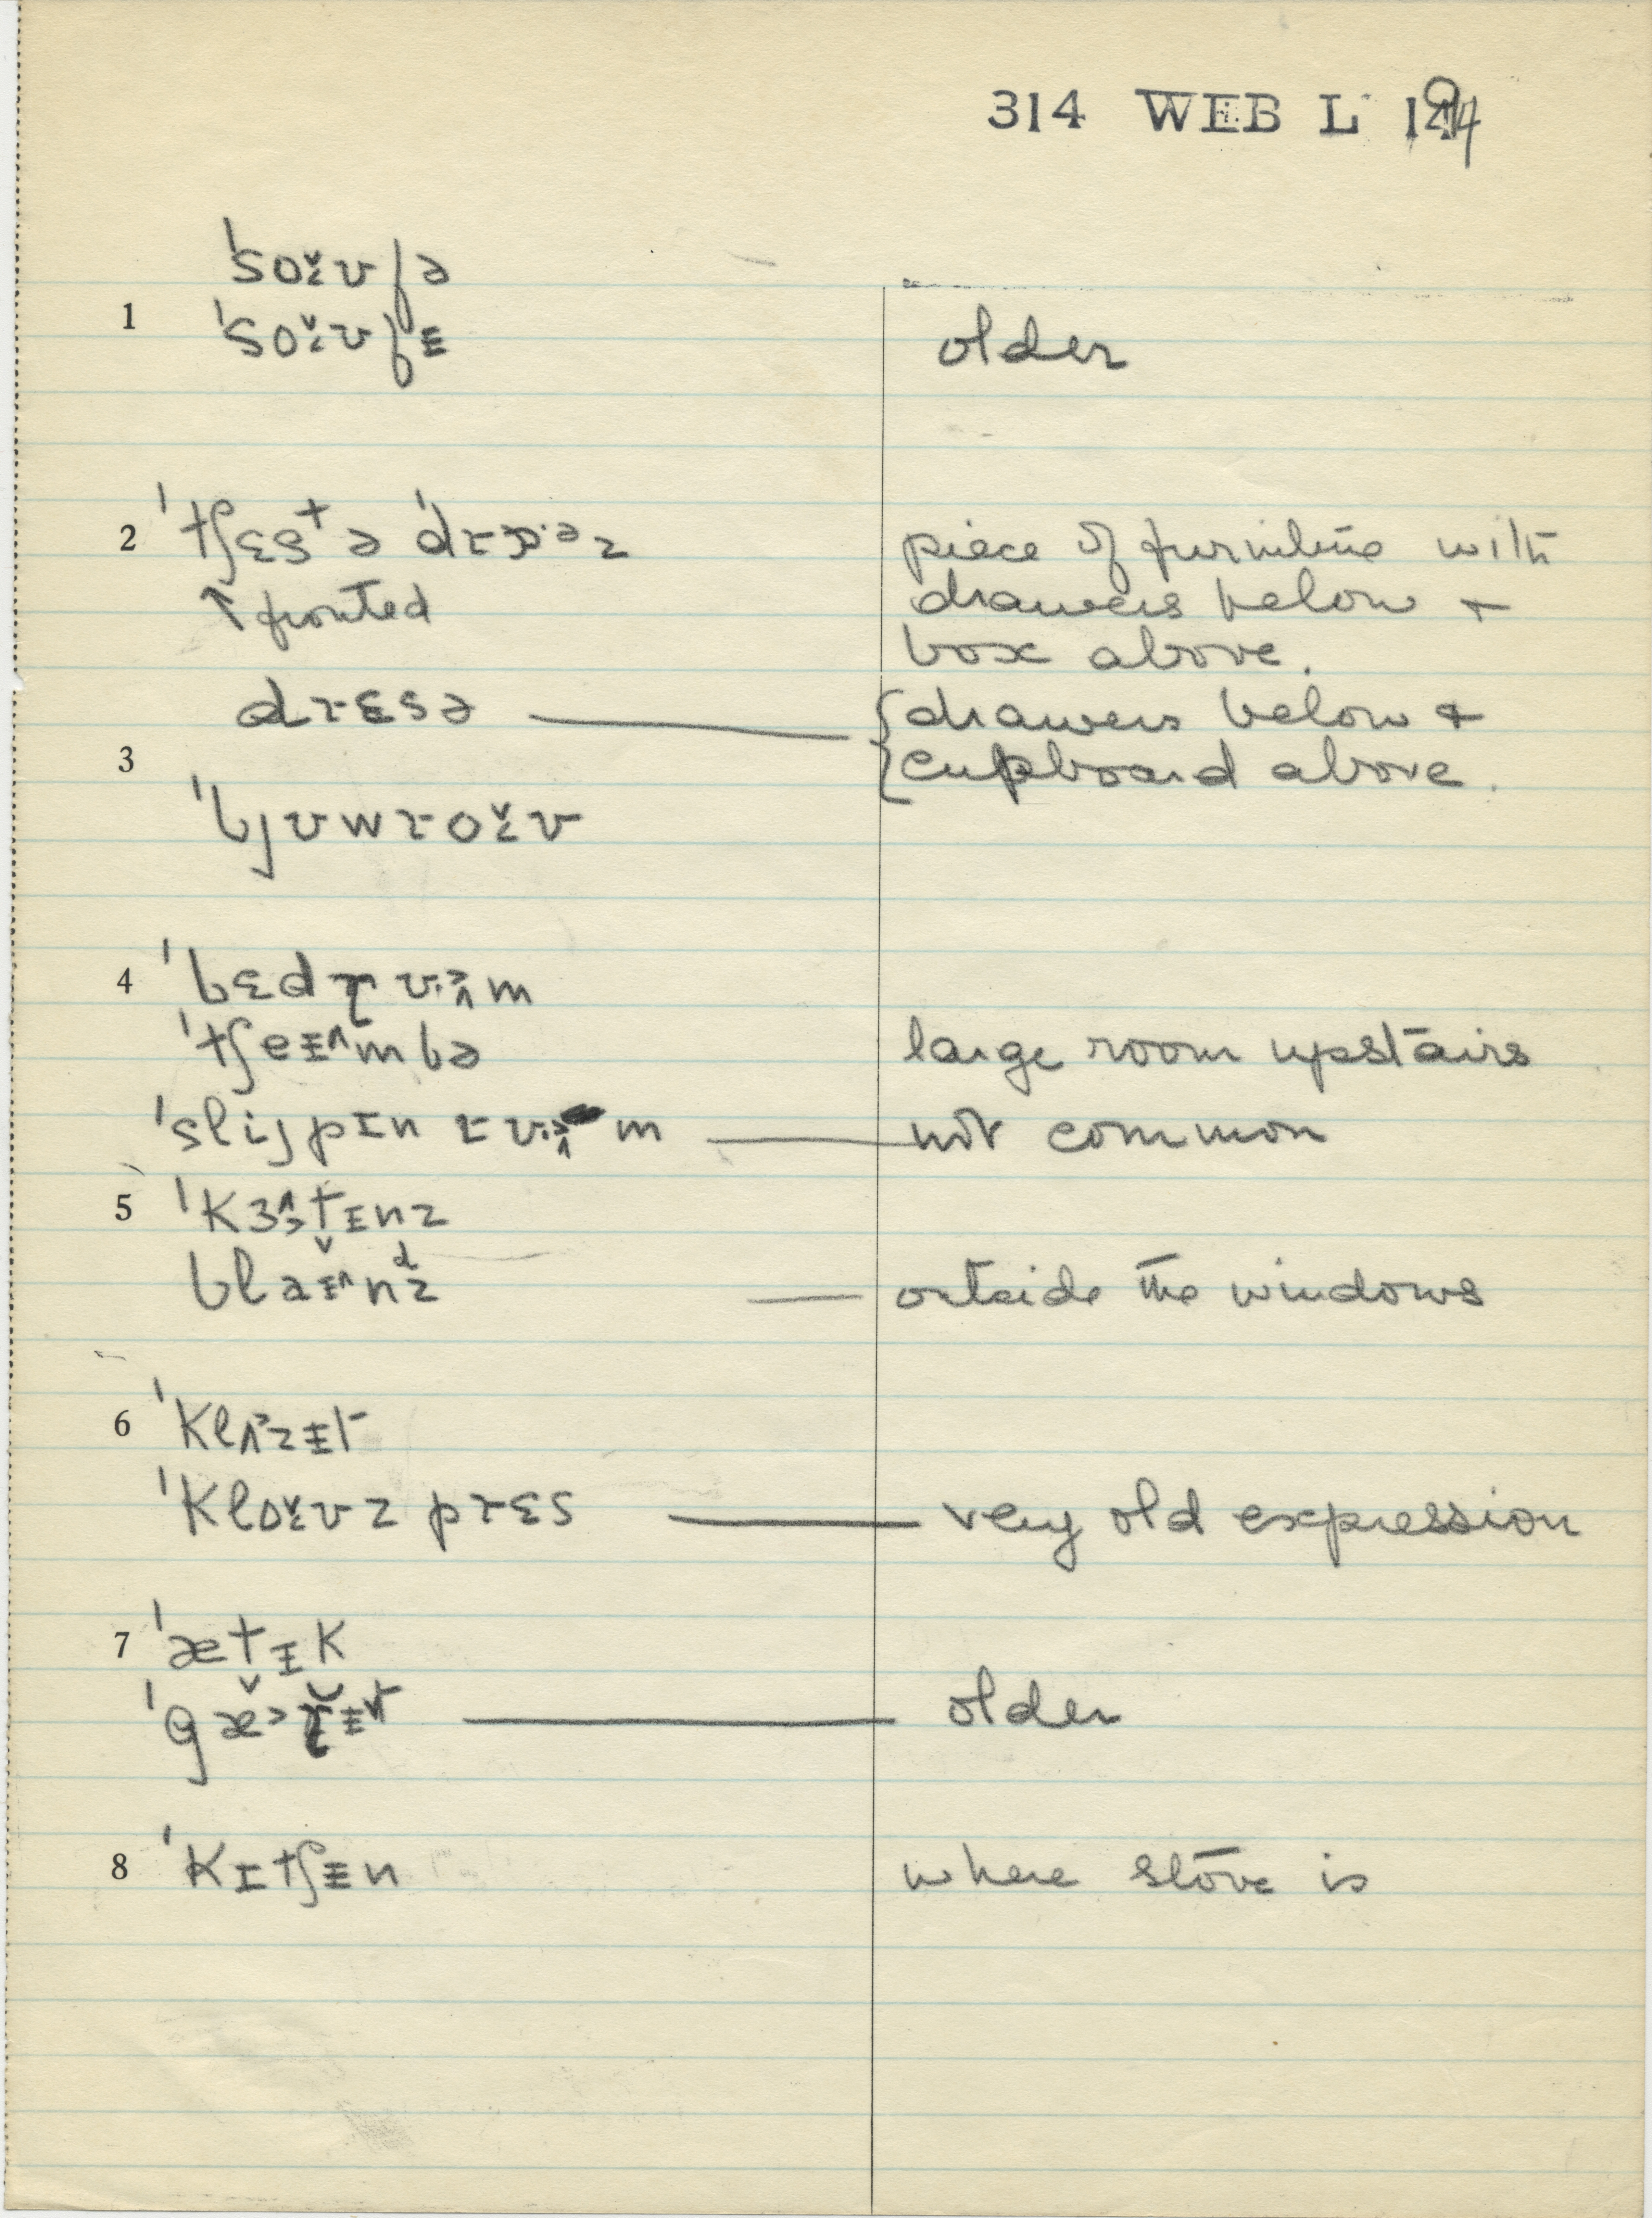 314 WEB L
ˈsoɛ̌ʊfə
1 ˈsoɛ̌ʊfᵻ older
2 ˈtʃɛstə ˈdrɒ·əz piece of furniture with
↑ fronted drawers below +
box above.
drɛsə — {drawers below &
3 {cupboard above.
ˈbjʊwroɛ̌ʊ
4 ˈbɛdɽʊm
ˈtʃeᵻ^mbə large room upstairs
ˈslijpɪn rʊm — not common
5 ˈkɜtᵻnz
blaᵻ^ndz — outside the windows
6 ˈklɑzᵻt
ˈkloɛ̌ʊz prɛs — very old expression
7 ˈætᵻk
ˈgæɽᵻt — older
8 ˈkɪtʃᵻn where stove is